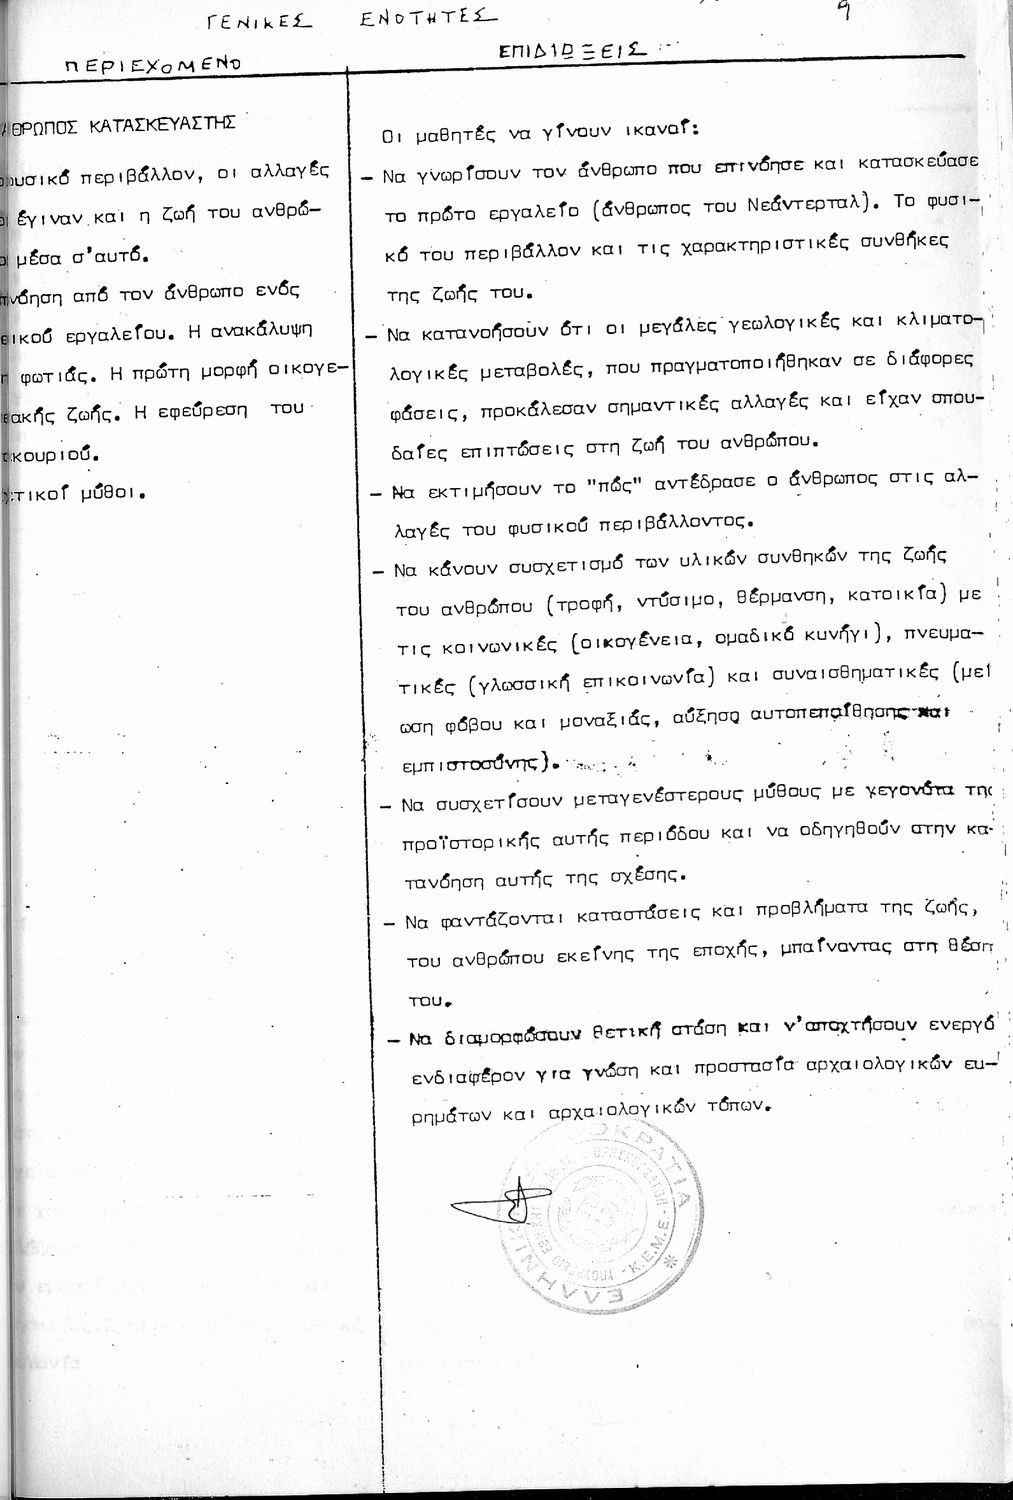 9
ΓΕΝΙΚΕΣ ΕΝΟΤΗΤΕΣ
ΠΕΡΙΕΧΟΜΕΝΟ
ΘΡΩΠΟΣ ΚΑΤΑΣΚΕΥΑΣΤΗΣ
υσικό περιβάλλον, οι αλλαγές
έγιναν και η ζωή του ανθρώ-
μέσα σ'αυτό.
νόηση από τον άνθρωπο ενός
ικού εργαλείου. Η ανακάλυψη
φωτιάς. Η πρώτη μορφή οικογε-
ακής ζωής. Η εφεύρεση του
κουριού.
τικοί μύθοι.
ΕΠΙΔΙΩΞΕΙΣ
Οι μαθητές να γίνουν ικανοί:
- Να γνωρίσουν τον άνθρωπο που επινόησε και κατασκεύασε
το πρώτο εργαλείο (άνθρωπος του Νεάντερταλ). Το φυσι-
κό του περιβάλλον και τις χαρακτηριστικές συνθήκες
της ζωής του.
- Να κατανοήσουν ότι οι μεγάλες γεωλογικές και κλιματο-
λογικές μεταβολές, που πραγματοποιήθηκαν σε διάφορες
φάσεις, προκάλεσαν σημαντικές αλλαγές και είχαν σπου-
δαίες επιπτώσεις στη ζωή του ανθρώπου.
- Να εκτιμήσουν το "πώς" αντέδρασε ο άνθρωπος στις αλ-
λαγές του φυσικού περιβάλλοντος.
- Να κάνουν συσχετισμό των υλικών συνθηκών της ζωής
του ανθρώπου (τροφή, ντύσιμο, θέρμανση, κατοικία) με
τις κοινωνικές (οικογένεια, ομαδικό κυνήγι), πνευμα-
τικές (γλωσσική επικοινωνία) και συναισθηματικές (μεί
ωση φόβου και μοναξιάς, αύξηση αυτοπεποίθησης και
εμπιστοσύνης).
- Να συσχετίσουν μεταγενέστερους μύθους με γεγονότα της
προϊστορικής αυτής περιόδου και να οδηγηθούν στην κα-
τανόηση αυτής της σχέσης.
- Να φαντάζονται καταστάσεις και προβλήματα της ζωής,
του ανθρώπου εκείνης της εποχής, μπαίνοντας στη θέση
του.
- Να διαμορφώσουν θετική στάση και ν'αποχτήσουν ενεργό
ενδιαφέρον για γνώση και προστασία αρχαιολογικών ευ-
ρημάτων και αρχαιολογικών τόπων.
ΕΛΛΗΝΙΚΗ ΔΗΜΟΚΡΑΤΙΑ
ΥΠΟΥΡΓΕΙΟ ΕΘΝΙΚΗΣ ΠΑΙΔΕΙΑΣ ΘΡΗΣΚΕΥΜΑΤΩΝ
-Κ.Ε.Μ.Ε.-